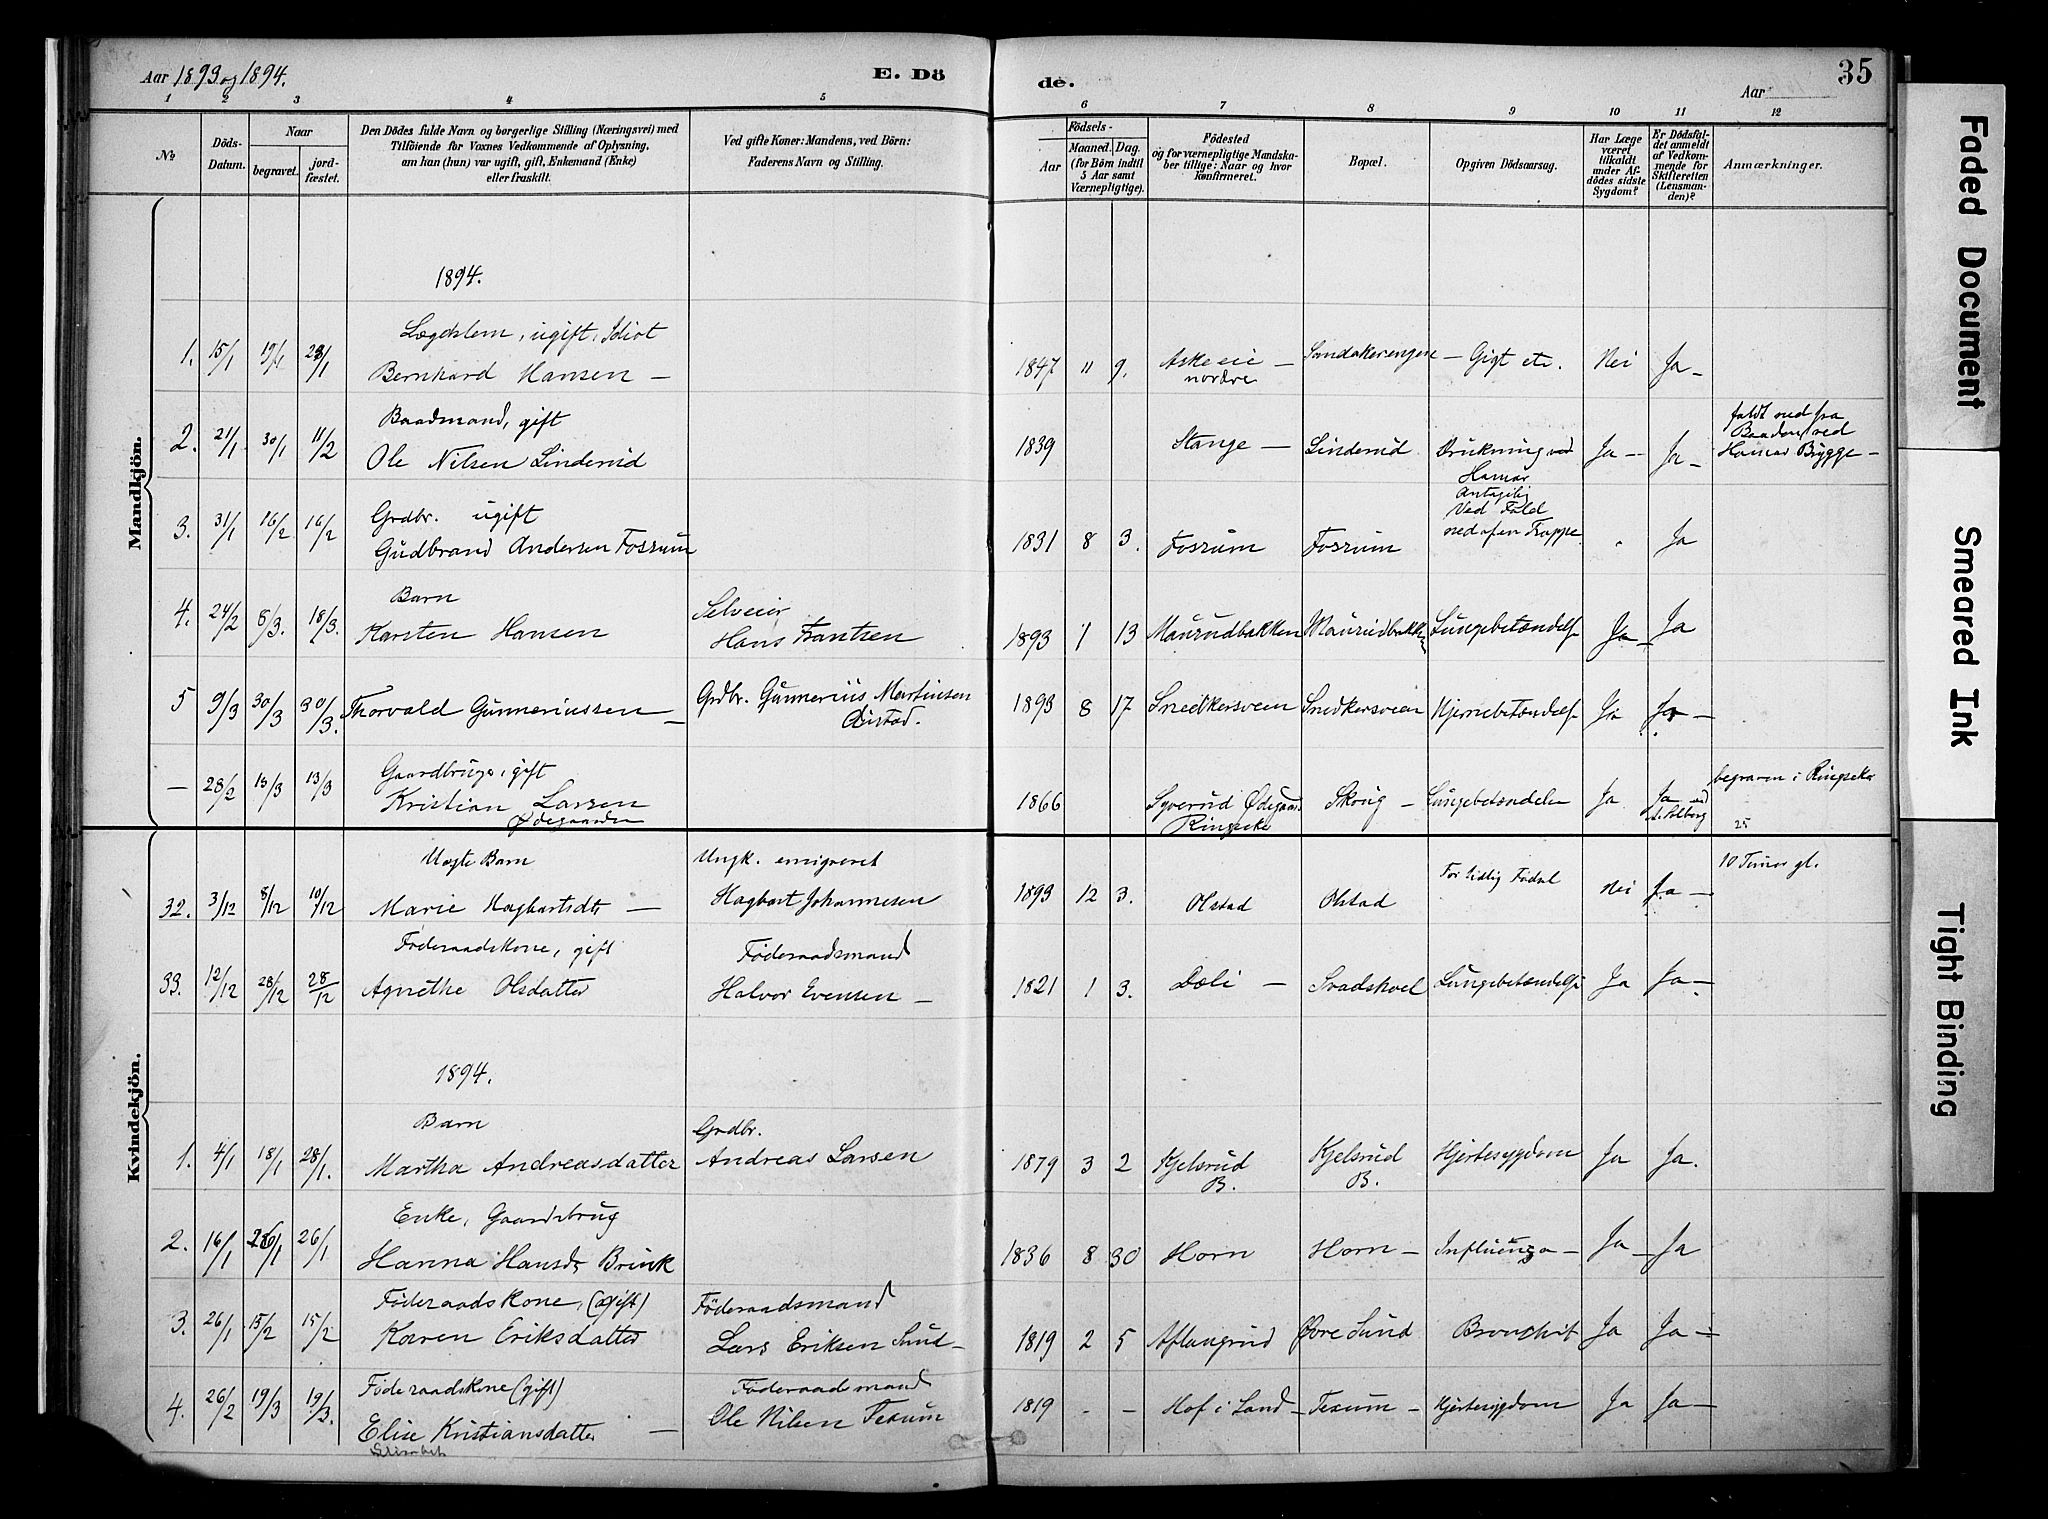 Aar 1893 og 1894.
E. Dö
de.
Aar
35
1 2 3 4 5 6 7 8 9 10 11 12
No
Döds-Datum.
Naar
begravet.
jord-fæstet.
Den Dödes fulde Navn og borgerlige Stilling (Næringsvei) med
Tilföiende for Voxnes Vedkommende af Oplysning,
om han (hun) var ugift, gift, Enkemand (Enke)
eller fraskilt.
Ved gifte Koner: Mandens, ved Börn:
Faderens Navn og Stilling.
Födsels-
Aar
Maaned. Dag.
(for Börn indtil
5 Aar samt
Værnepligtige).
Födested
og for værnepligtige Mandska-
ber tillige: Naar og hvor
konfirmeret.
Bopæl.
Opgiven Dödsaarsag.
Har Læge
været
tilkaldt
under Af-
dödes sidste
Sygdom?
Er Dödsfal-
det anmeldt
af Vedkom-
mende for
Skifteretten
(Lensman-
den)?
Anmærkninger.
Mandkjön.
1894.
Lægdslem, ugift, Idiot
1. 15/1 19/1 28/1 Bernhard Hansen — 1847 11 9. Aske eie — Sandakerengen — Gigt etc. Nei Ja —
nordre
Baadmand, gift
faldt ned fra
Baaden ved
2. 21/1 30/1 11/2 Ole Nilsen Linderud 1839 Stange — Linderud Drukning ved Ja — Ja — Hamar Brygge —
Hamar
Antagelig
Grdbr. ugift
Ved Fald
3. 31/1 16/2 16/2 Gudbrand Andersen Fossum 1831 8 3. Fossum Fossum ned af en Trappe " Ja
Barn
Selveier
4. 24/2 8/3. 18/3. Karsten Hansen Hans Frantsen 1893 1 13 Maurudbakken Maurudbakken Lungebetændelse Ja — Ja
5 9/3 30/3 30/3. Thorvald Gunneriussen — Grdbr. Gunnerius Martinsen 1893 8 17 Snedkersveen Snedkersveen Hjernebetændelse Ja Ja —
Gaardbruger, gift
begraven i Ringsaker
— 28/2 13/3 13/3 Kristian Larsen 1866 Syverud Ødegaard Skoug — Lungebetændelse Ja Ja
Ødegaarden
Ringsaker
25
Kvindekjön.
Uægte Barn
Ungk. emigreret
For tidlig Födsel
10 Timer gl.
32. 3/12 8/12 10/12 Marie Hagbartsdtr — Hagbart Johannesen 1893 12 3. Olstad Olstad Nei Ja —
Føderaadskone, gift
Føderaadsmand
33. 12/12 28/12 28/12 Agnethe Olsdatter Halvor Evensen — 1821 1 3. Dæli — Lungebetændelse Ja Ja —
1894.
Barn
Grdbr.
1. 4/1 18/1 28/1. Martha Andreasdatter Andreas Larsen 1879 3 2 Kjelsrud Kjelsrud Hjertesygdom Ja Ja.
B. B.
Enke, Gaardbrug
2. 16/1 26/1 26/1 Hanna Hansdr Brink 1836 8 30 Horn Horn — Influenza — Ja — Ja
Føderaadskone, (gift)
Føderaadsmand
3. 26/1 15/2 15/2 Karen Eriksdatter Lars Eriksen Sund — 1819 2 5 Aflangrud Øvre Sund Bronchit Ja Ja —
Føderaadskone (gift)
Føderaadmand
4. 26/2 19/3 19/3. Elise Kristiansdatter — Ole Nilsen Tesum 1819 - - Hof i Land — Tesum — Hjertesygdom Ja Ja —
Elisabet
Faded Document
Smeared Ink
Tight Binding